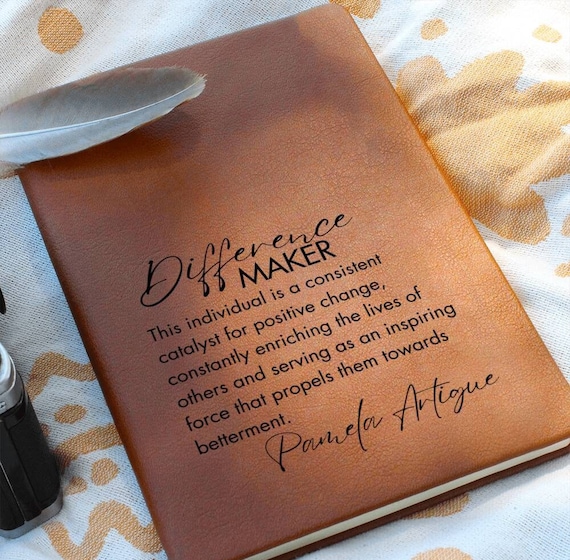 Difference
MAKER
This individual is a consistent
catalyst for positive change,
constantly enriching the lives of
others and serving as an inspiring
force that propels them towards
betterment.
Pamela Artigue